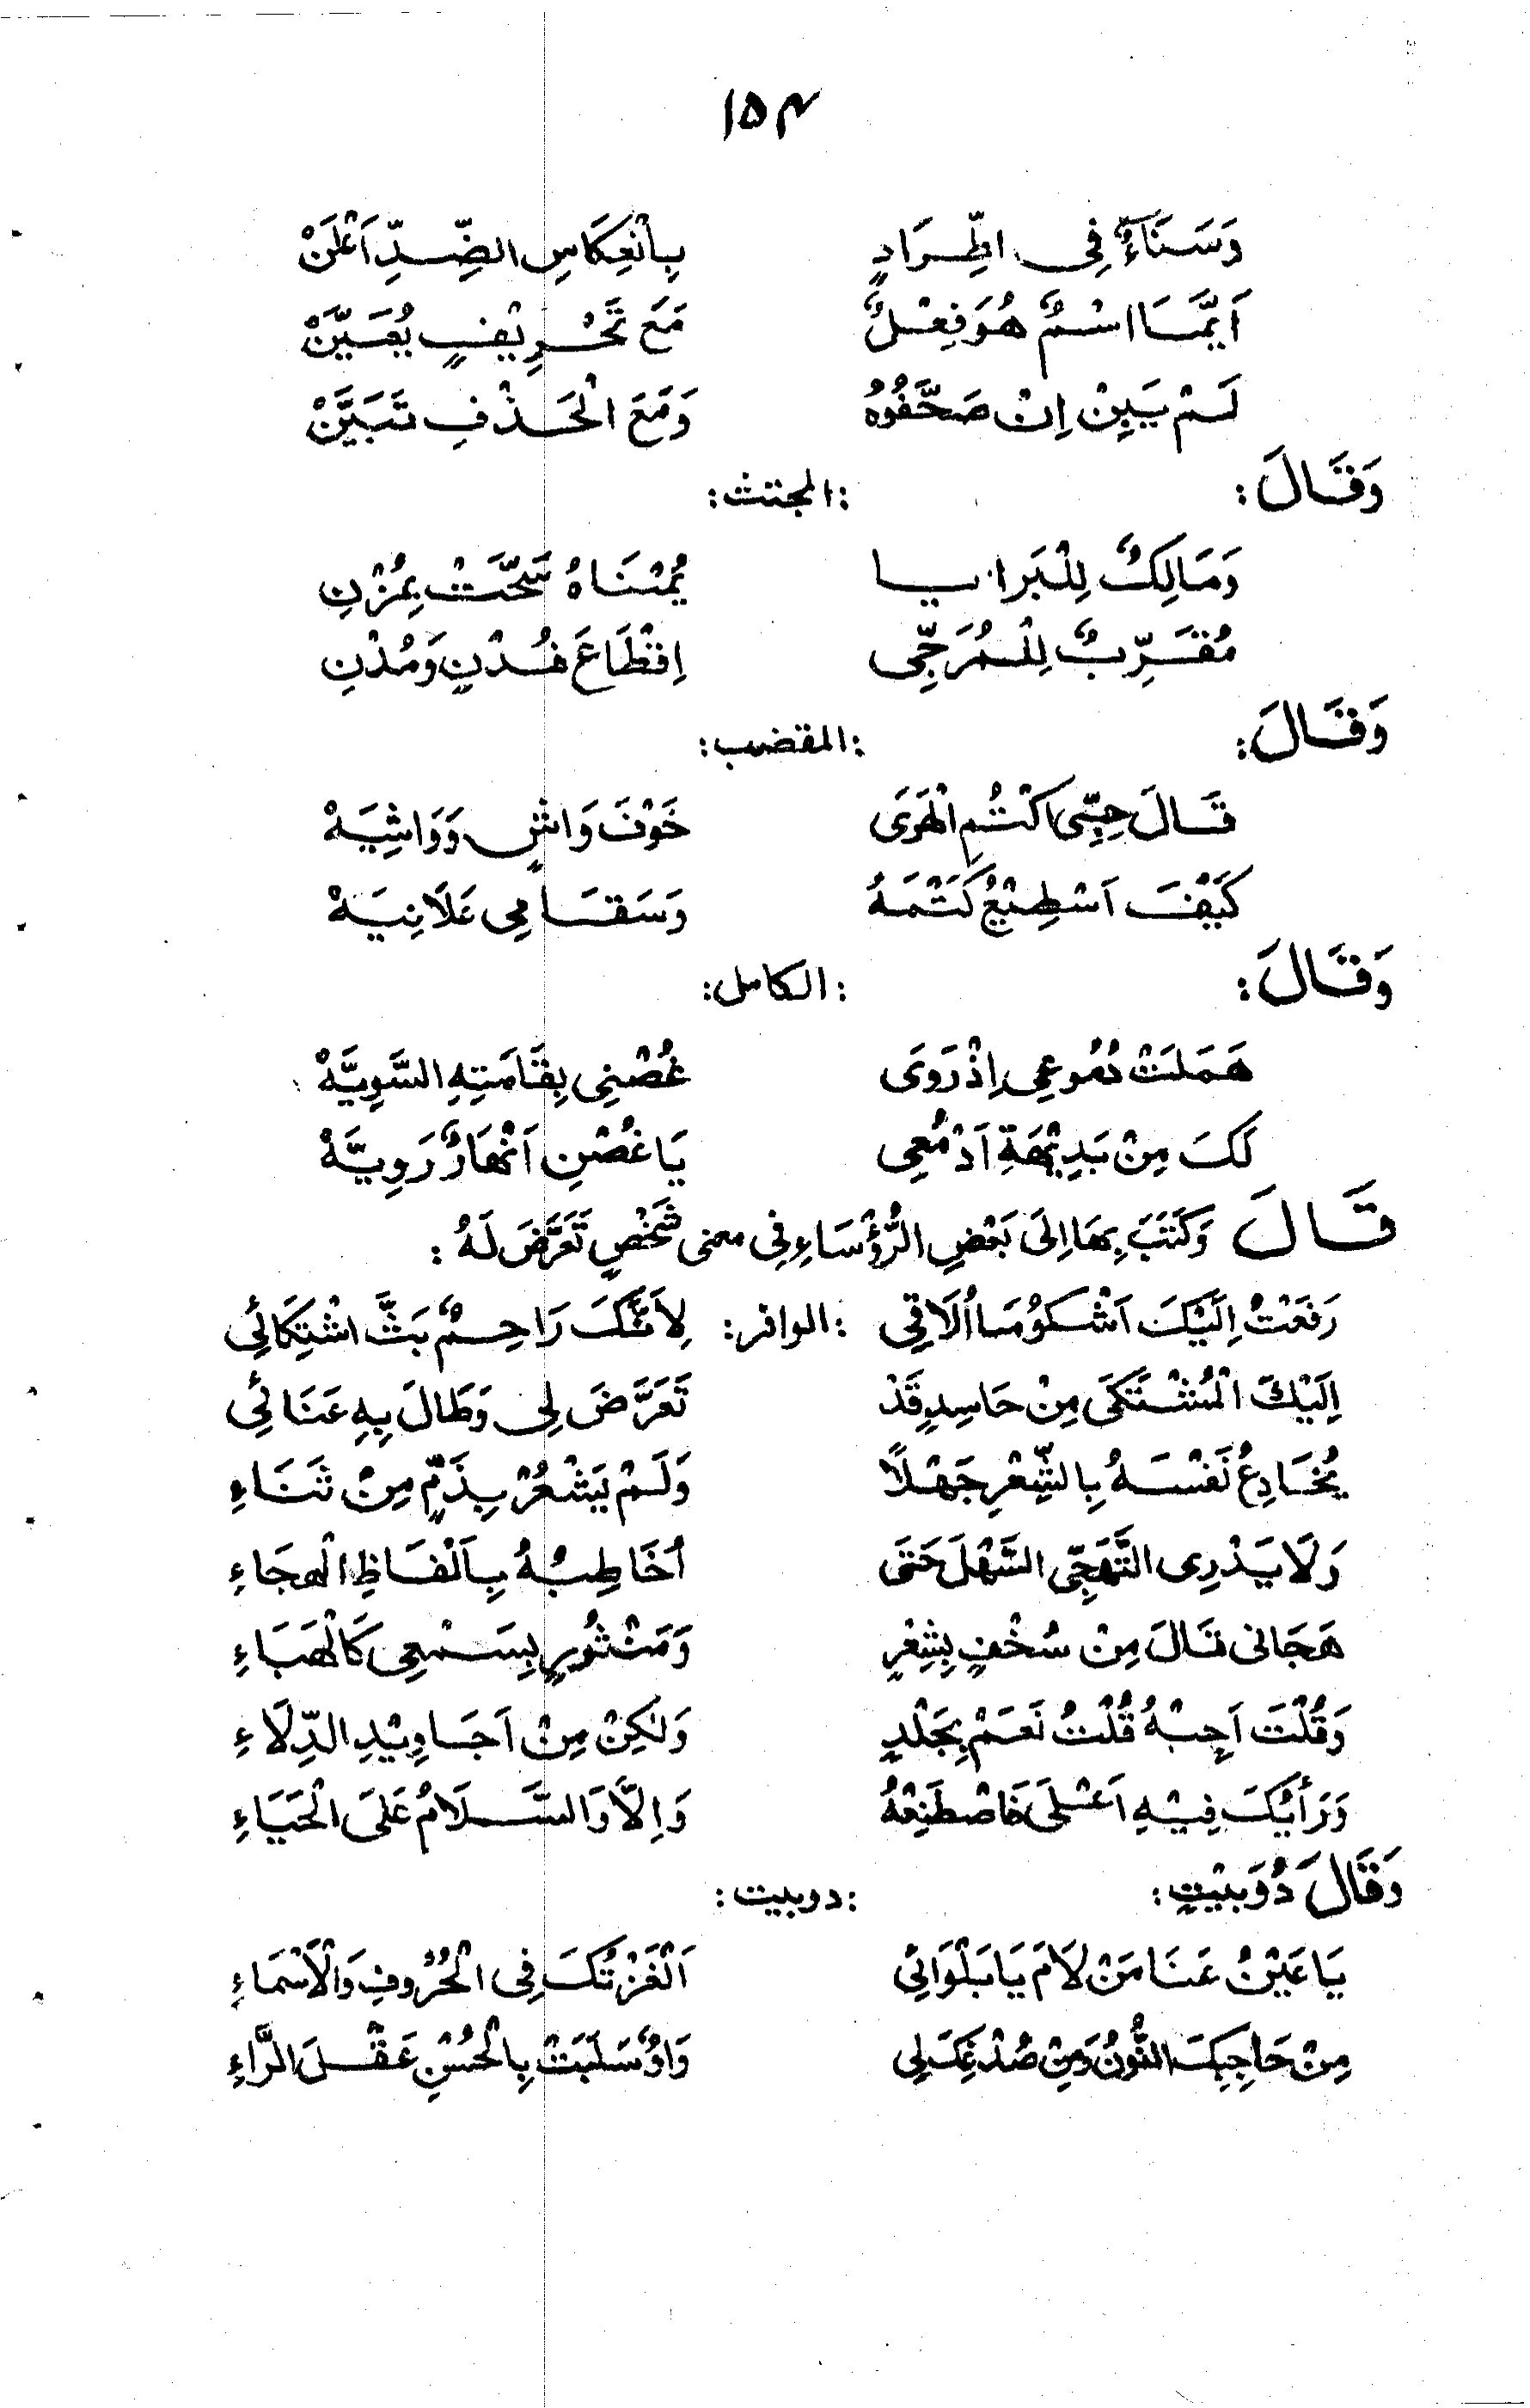 ۱۵۴
وَسَنَاءٌ فِى اطِّرَادٍ بِانْعِكَاسِ الضِّدِّ اَعْلَنْ
اَيَّمَا اسْمٌ هُوَ فِعْلٌ مَعَ تَحْرِيْفٍ يُعَيَّنْ
لَمْ يَبِنْ اِنْ صَحَّفُوْهُ وَمَعَ الْحَذْفِ تَبَيَّنْ
وَقَالَ: :المجتث:
وَمَالِكٌ لِلْبَرَايا يُمْنَاهُ سَحَّتْ بِمُزْنِ
مُقَرِّبٌ لِلْمُرَجِّى اِقْطَاعَ مُدْنٍ وَمُدْنِ
وَقَالَ: :المقضب:
قَالَ حِبِّى اكْتُمِ الْهَوَى خَوْفَ وَاشٍ وَوَاشِيَهْ
كَيْفَ اَسْطِيْعُ كَتْمَهُ وَسَقَامِى عَلَانِيَهْ
وَقَالَ: :الكامل:
هَمَلَتْ دُمُوعِى اِذْ رَوَى غُصْنِى بِقَامَتِهِ السَّوِيَّهْ
لَكَ مِنْ بَدِيْهَةِ اَدْمُعِى يَا غُصْنِ اَنْهَارٌ رَوِيَّهْ
قَالَ وَكَتَبَ بِهَا اِلَى بَعْضِ الرُّؤَسَاءِ فِى معنى شَخْصٍ تَعَرَّضَ لَهُ:
رَفَعْتُ اِلَيْكَ اَشْكُوْ مَا اُلَاقِى :الوافر: لِاَنَّكَ رَاحِمٌ بَثَّ اشْتِكَائِى
اِلَيْكَ الْمُشْتَكَى مِنْ حَاسِدٍ قَدْ تَعَرَّضَ لِى وَطَالَ بِهِ عَنَائِى
يُخَادِعُ نَفْسَهُ بِالشِّعْرِ جَهْلًا وَلَمْ يَشْعُرْ بِذَمٍّ مِنْ ثَنَاءِ
وَلَا يَدْرِى التَّهَجِّى السَّهْلَ حَتَى اُخَاطِبُهُ بِاَلْفَاظِ الْهِجَاءِ
هَجَانى قَالَ مِنْ سُخْفٍ بِشِعْرٍ وَمَنْثُورٍ بِسَمْعِى كَالْهَبَاءِ
وَقُلْتَ اَجِبْهُ قُلْتُ نَعَمْ بِجَلْدٍ وَلٰكِنْ مِنْ اَجَاوِيْدِ الدِّلَاءِ
وَرَأيُكَ فِيْهِ اَعْلَى فَاصْطَنِعْهُ وَاِلَّا وَالسَّلَامُ عَلَى الْحَيَاءِ
وَقَالَ دُوَبَيْتٍ: :دوبيت:
يَا عَيْنُ عَنَا مَنْ لَامَ يَا بَلْوَائِى اَلْغَزْتُكَ فِى الْحُرُوفِ وَالْاَسْمَاءِ
مِنْ حَاجِبِكَ النُّونُ وَمِنْ صُدْغِكَ لِى وَاوٌ سَلَبَتْ بِالْحُسْنِ عَقْلَ الرَّاءِ